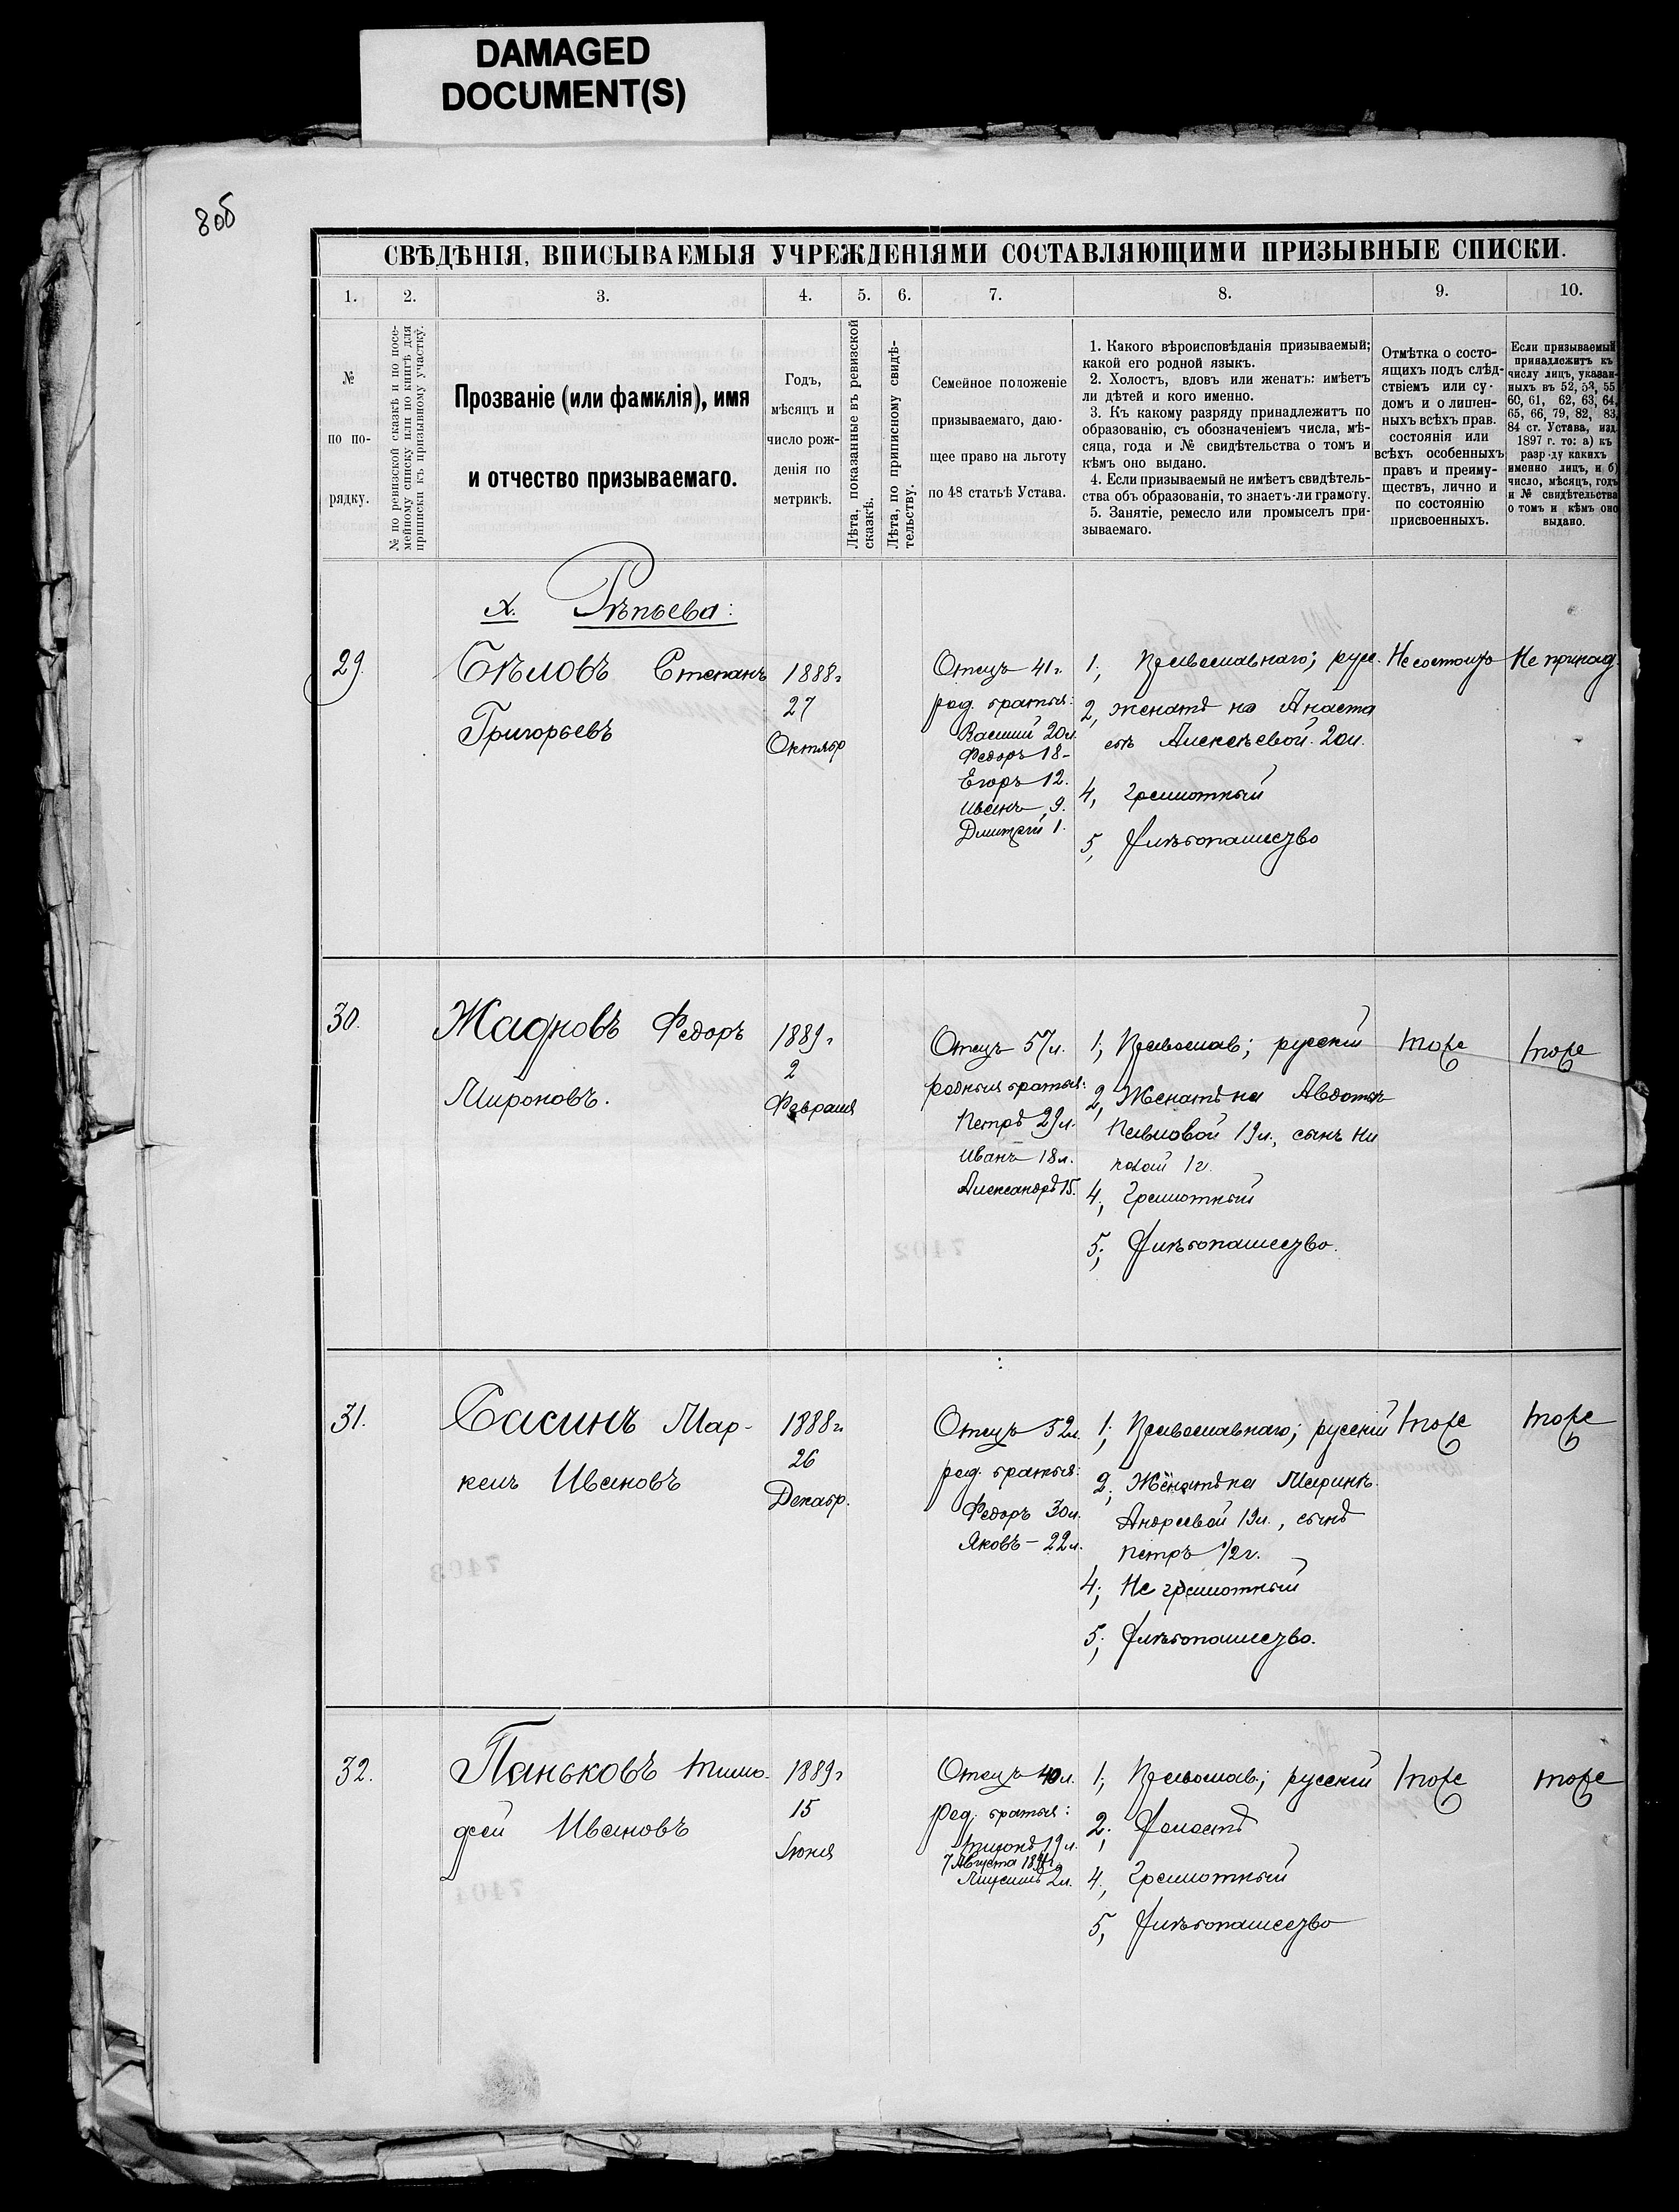 DAMAGED
DOCUMENT(S)
8об
СВѢДѢНІЯ, ВПИСЫВАЕМЫЯ УЧРЕЖДЕНІЯМИ СОСТАВЛЯЮЩИМИ ПРИЗЫВНЫЕ СПИСКИ.
1. 2. 3. 4. 5. 6. 7. 8. 9. 10.
№
по по-
рядку.
№ по ревизской сказкѣ и по посе-
мейному списку или по книгѣ для
приписки къ призывному участку.
Прозваніе (или фамилія), имя
и отчество призываемаго.
Годъ,
мѣсяцъ и
число рож-
денія по
метрикѣ.
Лѣта, показанные въ ревизской
сказкѣ.
Лѣта, по приписному свидѣ-
тельству.
Семейное положеніе
призываемаго, даю-
щее право на льготу
по 48 статьѣ Устава.
1. Какого вѣроисповѣданія призываемый;
какой его родной языкъ.
2. Холостъ, вдовъ или женатъ: имѣетъ
ли дѣтей и кого именно.
3. Къ какому разряду принадлежитъ по
образованію, съ обозначеніемъ числа, мѣ-
сяца, года и № свидѣтельства о томъ и
кѣмъ оно выдано.
4. Если призываемый не имѣетъ свидѣтель-
ства объ образованіи, то знаетъ-ли грамоту.
5. Занятіе, ремесло или промыселъ при-
зываемаго.
Отмѣтка о состо-
ящихъ подъ слѣд-
ствіемъ или су-
домъ и о лишен-
ныхъ всѣхъ прав.
состоянія или
всѣхъ особенныхъ
правъ и преиму-
ществъ, лично и
по состоянію
присвоенныхъ.
Если призываемый
принадлежитъ къ
числу лицъ, указан-
ныхъ въ 52, 53, 55,
60, 61, 62, 63, 64,
65, 66, 79, 82, 83,
84 ст. Устава, изд.
1897 г. то: а) къ
разр·ду какихъ
именно лицъ, и б)
число, мѣсяцъ, годъ
и № свидѣтельства
о томъ и кѣмъ оно
выдано.
х. Рѣпьева:
29.
Бѣловъ Степанъ
Григорьевъ
1888г
27
Октябр
Отецъ 41г.
род. братья:
Василий 20л.
Федоръ 18-
Егоръ 12.
Иванъ 9.
Дмитрий 1.
1; Православнаго; русс.
2, женатъ на Анаста
сіи Алексѣевой. 20л.
4, Грамотный
5, Хлѣбопашество
Не состоитъ
Не принад.
30.
Жадновъ Федоръ
Мироновъ.
1889г
2
Февраля
Отецъ 57л.
родныя братья:
Петръ 29л.
Иванъ 18л.
Александръ 15.
1; Православ; русскій
2, Женатъ на Авдотьѣ
Павловой 19л., сынъ Ни
колай 1г.
4; Грамотный
5; Хлѣбопашество.
тоже
тоже
31.
Сасинъ Мар-
келъ Ивановъ
1888г.
26
Декабр.
Отецъ 52л.
род. братья:
Федоръ 30л.
Яковъ - 22л.
1; Православнаго; русскій
2; Женатъ на Маринѣ
Андреевой 19л., сынъ
Петръ 1/2г.
4; Не грамотный
5; Хлѣбопашество.
тоже
тоже
32.
Паньковъ Тимо-
фей Ивановъ
1889г
15
Іюня
Отецъ 40л.
Род. братья:
19л.
7 Августа
2л.
1; Православ; русскій
2; Холостъ
4; Грамотный
5; Хлѣбопашество
тоже
тоже